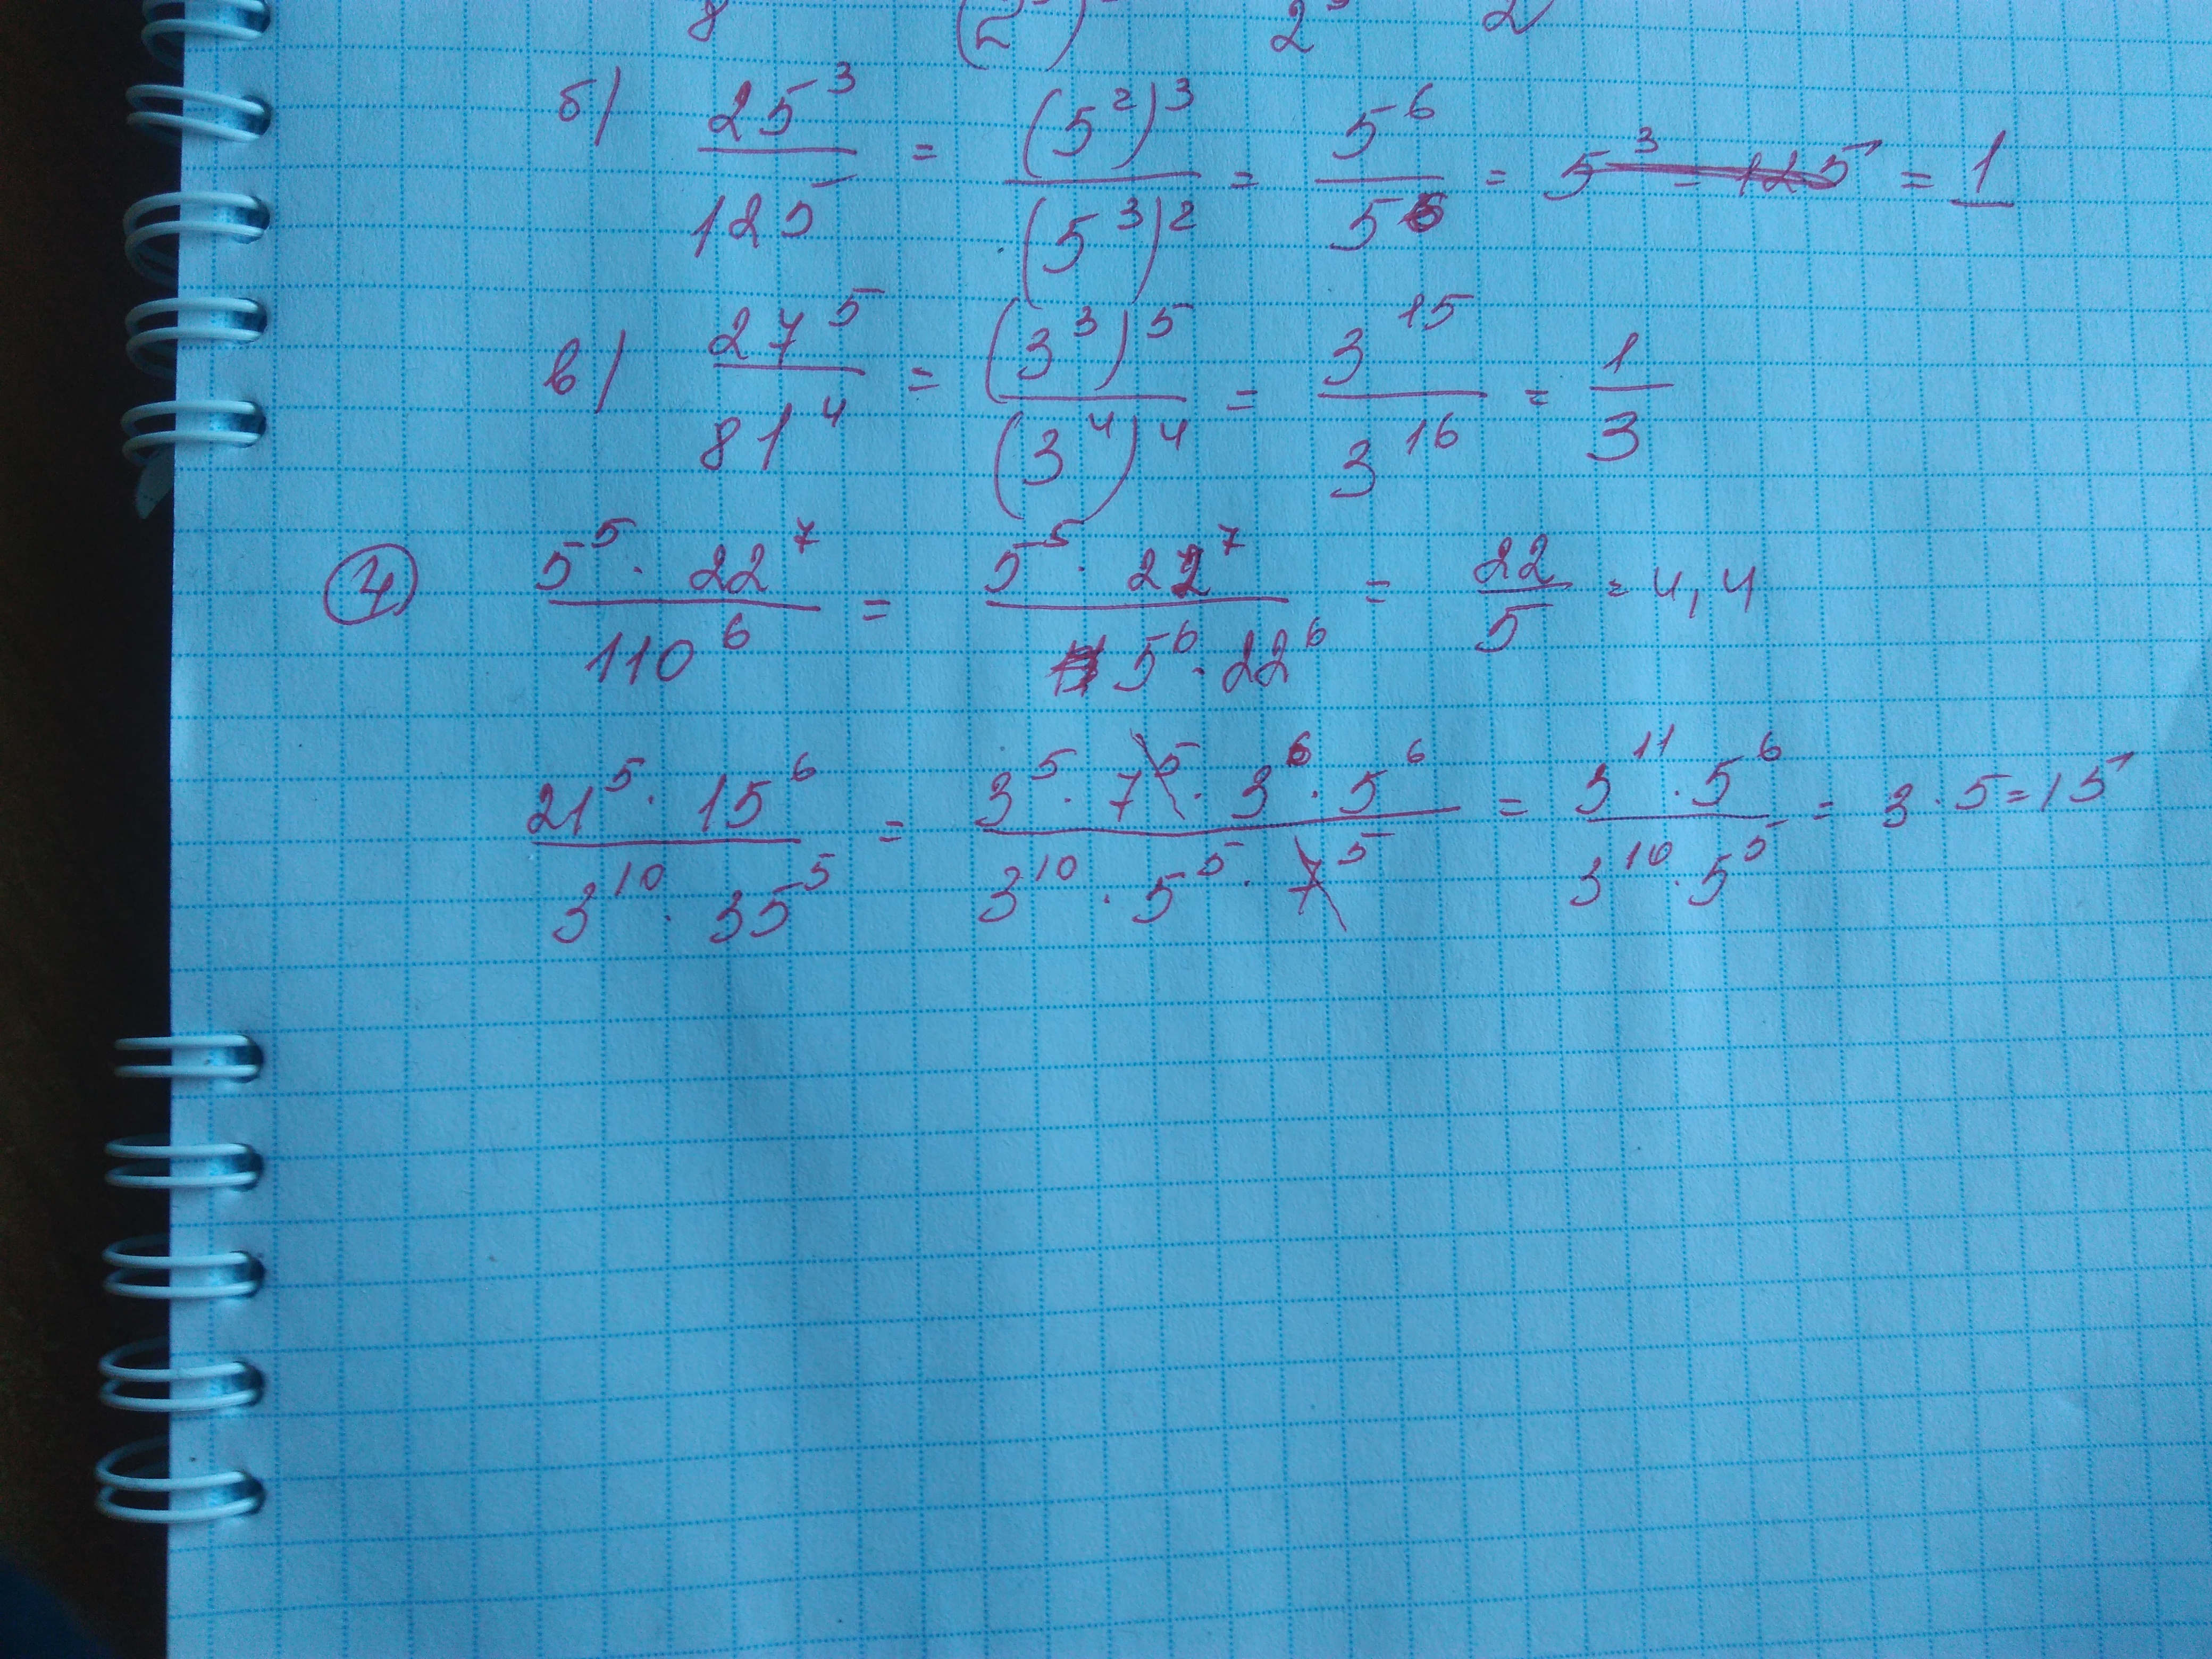 8 (2 ) 2 2
б) 25³/125 = (5²)³/(5³)² = 5⁶/5⁶ = 5³ = 125 = 1
в) 27⁵/81⁴ = (3³)⁵/(3⁴)⁴ = 3¹⁵/3¹⁶ = 1/3
④ 5⁵ · 22⁷/110⁶ = 5⁵ · 22⁷/5⁶ · 22⁶ = 22/5 = 4,4
21⁵ · 15⁶/3¹⁰ · 35⁵ = 3⁵ · 7⁵ · 3⁶ · 5⁶/3¹⁰ · 5⁵ · 7⁵ = 3¹¹ · 5⁶/3¹⁰ · 5⁵ = 3 · 5 = 15